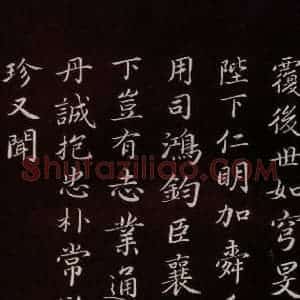 覆後世如穹旻
陛下仁明加舜
用司鴻鈞臣襄
下豈有志業通
丹誠抱忠朴常
珍又聞
Shufaziliao.com